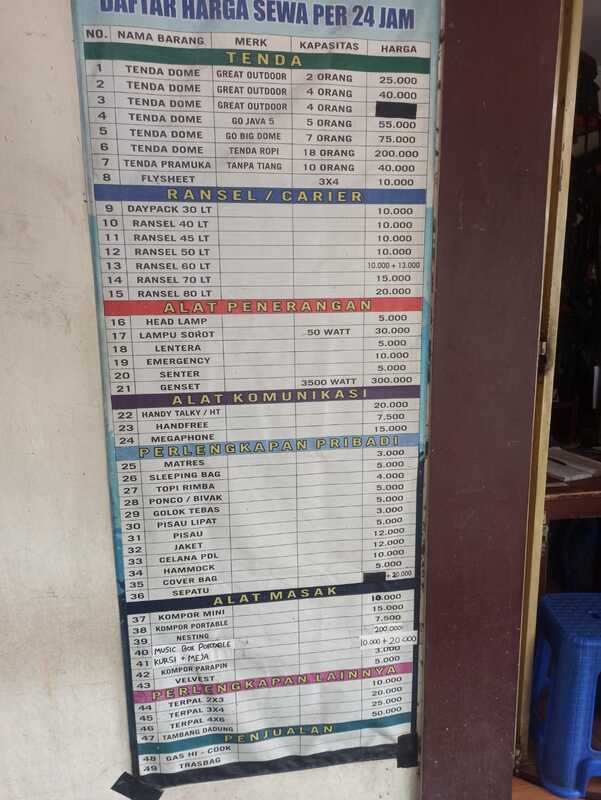 DAFTAR HARGA SEWA PER 24 JAM
NO. NAMA BARANG MERK KAPASITAS HARGA
TENDA
1 TENDA DOME GREAT OUTDOOR 2 ORANG 25.000
2 TENDA DOME GREAT OUTDOOR 4 ORANG 40.000
3 TENDA DOME GREAT OUTDOOR 4 ORANG
4 TENDA DOME GO JAVA 5 5 ORANG 55.000
5 TENDA DOME GO BIG DOME 7 ORANG 75.000
6 TENDA DOME TENDA ROPI 18 ORANG 200.000
7 TENDA PRAMUKA TANPA TIANG 10 ORANG 40.000
8 FLYSHEET 3X4 10.000
RANSEL / CARIER
9 DAYPACK 30 LT 10.000
10 RANSEL 40 LT 10.000
11 RANSEL 45 LT 10.000
12 RANSEL 50 LT 10.000
13 RANSEL 60 LT 10.000 + 13.000
14 RANSEL 70 LT 15.000
15 RANSEL 80 LT 20.000
ALAT PENERANGAN
16 HEAD LAMP 5.000
17 LAMPU SOROT 50 WATT 30.000
18 LENTERA 5.000
19 EMERGENCY 10.000
20 SENTER 5.000
21 GENSET 3500 WATT 300.000
ALAT KOMUNIKASI
22 HANDY TALKY / HT 20.000
23 HANDFREE 7.500
24 MEGAPHONE 15.000
PERLENGKAPAN PRIBADI
25 MATRES 3.000
26 SLEEPING BAG 5.000
27 TOPI RIMBA 4.000
28 PONCO / BIVAK 5.000
29 GOLOK TEBAS 5.000
30 PISAU LIPAT 3.000
31 PISAU 5.000
32 JAKET 12.000
33 CELANA PDL 12.000
34 HAMMOCK 10.000
35 COVER BAG 5.000
36 SEPATU + 20.000
ALAT MASAK
37 KOMPOR MINI 10.000
38 KOMPOR PORTABLE 15.000
39 NESTING 7.500
40 MUSIC BOX PORTABLE 200.000
41 KURSI + MEJA 10.000 + 20.000
42 KOMPOR PARAPIN 3.000
43 VELVEST 5.000
PERLENGKAPAN LAINNYA
44 TERPAL 2X3 10.000
45 TERPAL 3X4 20.000
46 TERPAL 4X6 25.000
47 TAMBANG DADUNG 50.000
PENJUALAN
48 GAS HI - COOK
49 TRASBAG